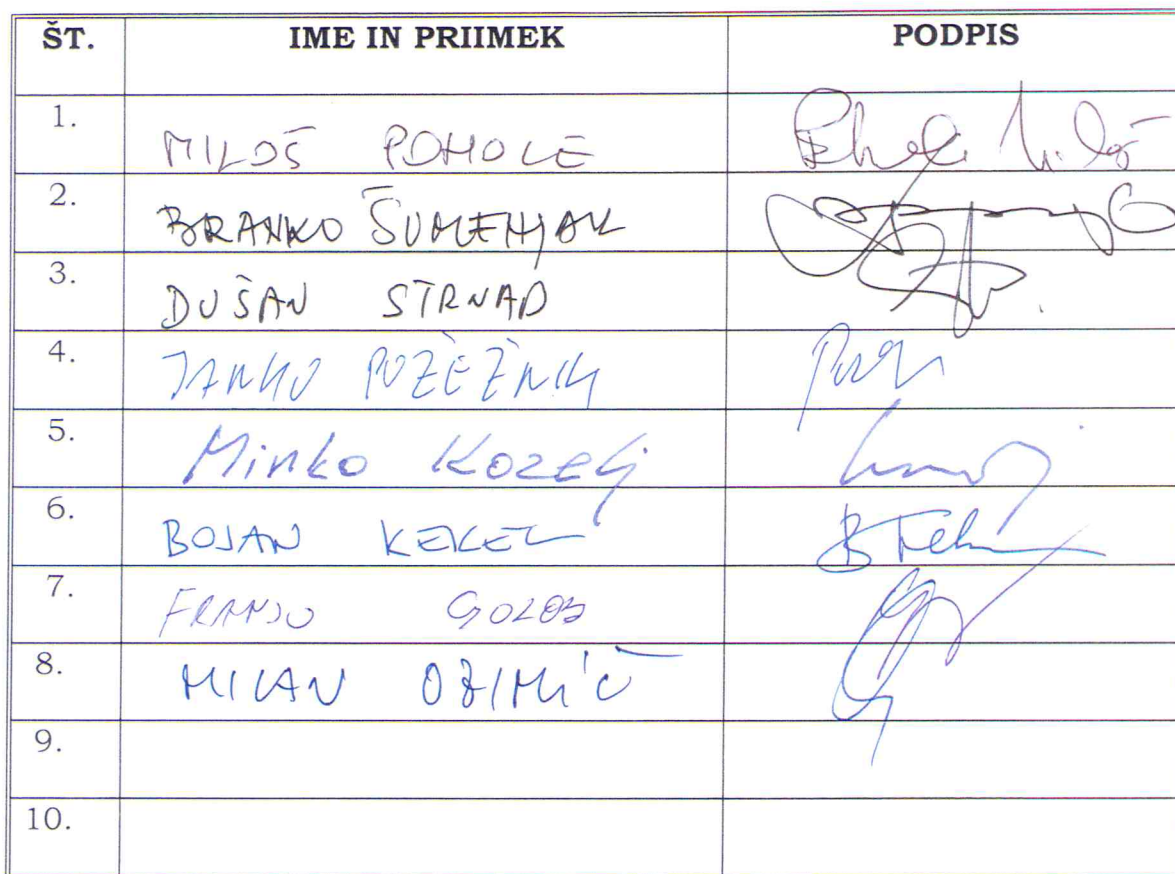 ŠT. IME IN PRIIMEK PODPIS
1. MILOŠ POHOLE
2. BRANKO ŠUMENJAK
3. DUŠAN STRNAD
4. JANKO POŽEŽNIK
5. Mirko Kozelj
6. BOJAN KEKEC
7. FRANJO GOLOB
8. MILAN OZIMIČ
9.
10.